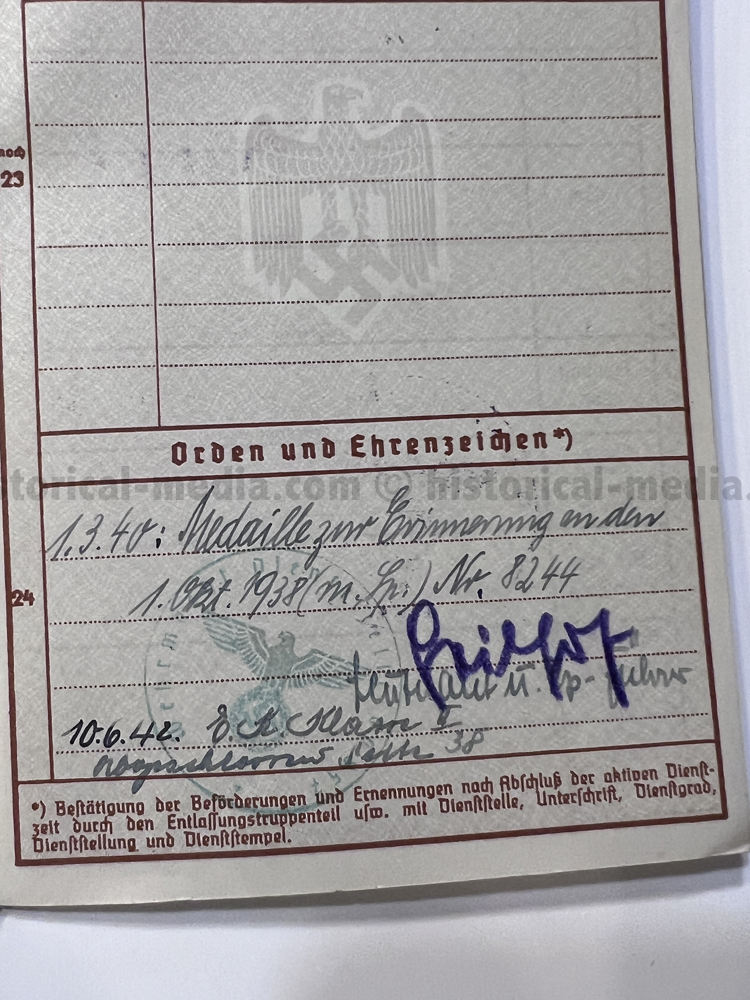 noch
23
Orden und Ehrenzeichen*)
historical-media.com © historical-media.
1.3.40: Medaille zur Erinnerung an den
24
1. Okt. 1938 (m. Sp.) Nr. 8244
Leutnant u. Kp-Führer
10.6.42. E.K. Klasse II
Seite 38
*) Bestätigung der Beförderungen und Ernennungen nach Abschluß der aktiven Dienst-
zeit durch den Entlassungstruppenteil usw. mit Dienststelle, Unterschrift, Dienstgrad,
Dienststellung und Dienststempel.